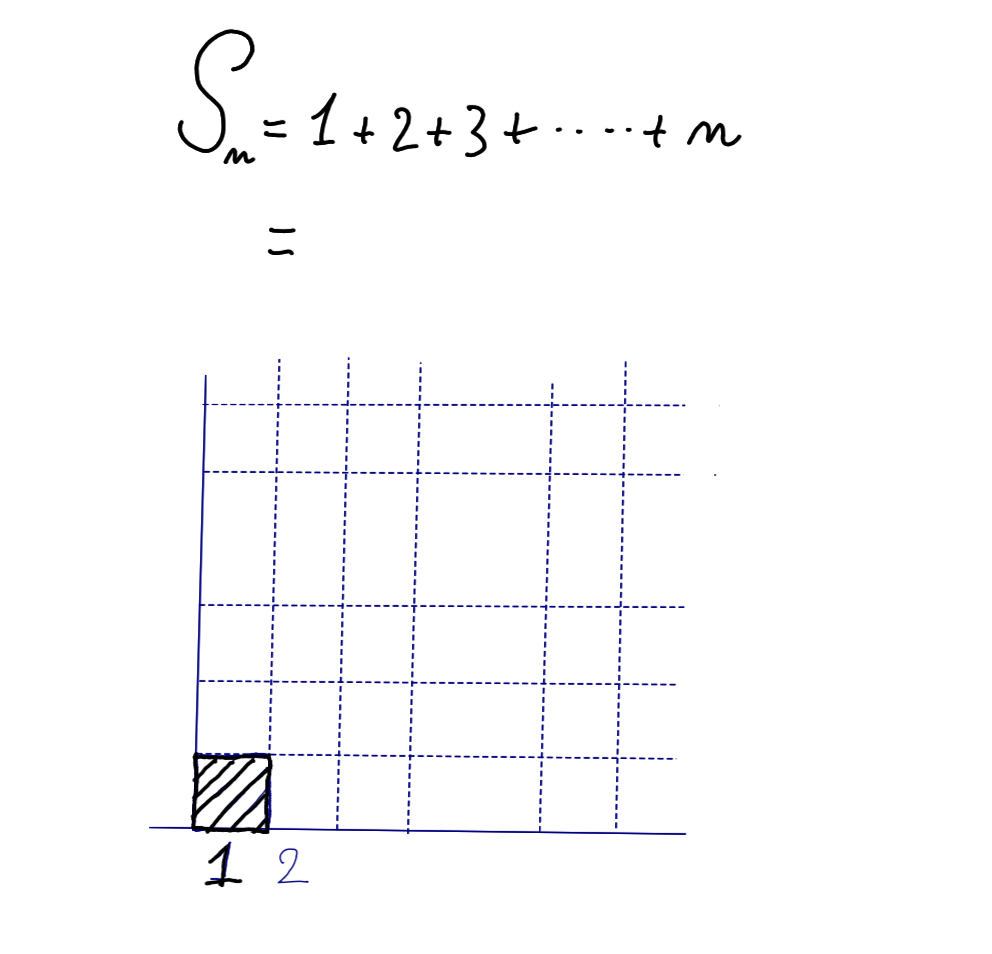 Sn = 1 + 2 + 3 + ..... + n
=
1 2